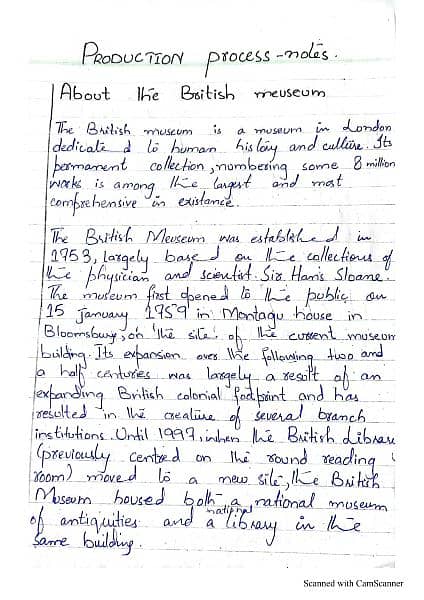 PRODUCTION process-notes.
About the British meuseum
The British museum is a museum in London
dedicate d to human history and culture. Its
permament collection, nombering some 8 million
works is among the largest and most
comprehensive in existance.
The British Meuseum was established in
1953, largely based on the collections of
the physician and scientist. Sir Hans Sloane.
The museum first opened to the public on
15 january 1959 in Montagu house in
Bloomsbury, on the site of the current museum
building. Its expansion over the following two and
a half centuries was largely a result of an
expanding British colonial footpoint and has
resulted in the creature of several branch
institutions. Until 1997, when the British Library
(previously centred on the round reading
room) moved to a new site, the British
Museum housed both a national museum
of antiquities and a national library in the
same building.
Scanned with CamScanner